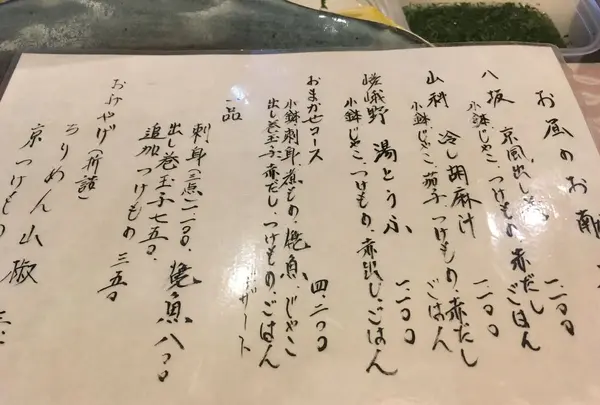 お昼のお献
八坂 京風出し
一二〇〇
小鉢、じゃこ、つけもの、赤だし
ごはん
山科 冷し胡麻汁
一二〇〇
小鉢、じゃこ、茄子、つけもの、赤だし
ごはん
嵯峨野 湯とうふ
一二〇〇
小鉢、じゃこ、つけもの、赤出し、ごはん
おまかせコース
四、二〇〇
小鉢、刺身、煮もの、焼魚、じゃこ
出し巻玉子、赤だし、つけもの、ごはん
デザート
一品
刺身(三点)一二〇〇、焼魚八〇〇
出し巻玉子七五〇、
追加つけもの 三五〇
おみやげ(折詰)
ちりめん山椒
京つけもの